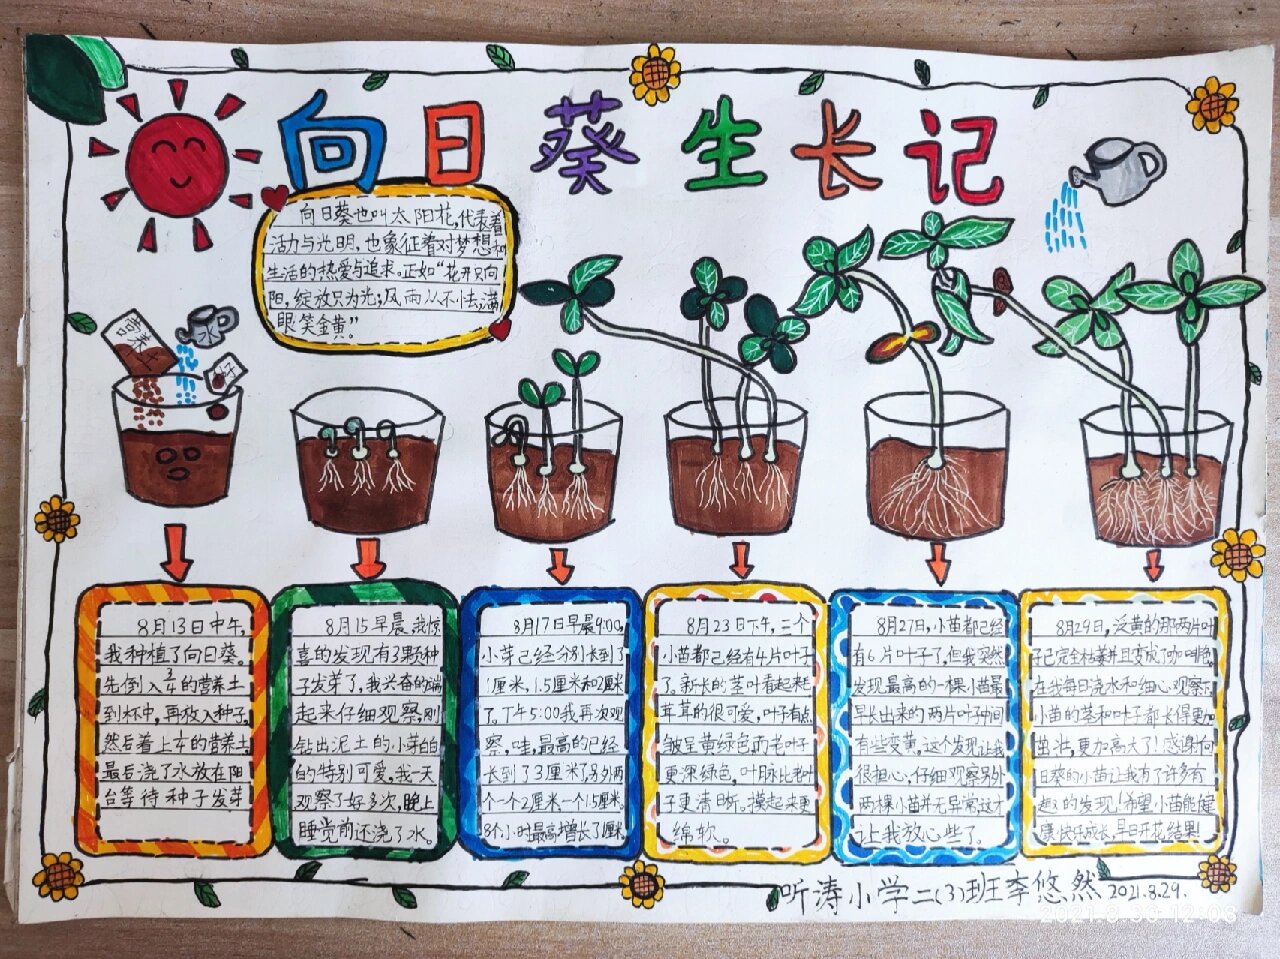 向日葵生长记
向日葵也叫太阳花,代表着
活力与光明,也象征着对梦想和
生活的热爱与追求。正如“花开只向
阳,绽放只为光;风雨从不去,满
眼笑金黄”。
营养土
8月13日中午,
我种植了向日葵。
先倒入3/4的营养土
到杯中,再放入种子,
然后着上1/4的营养土
最后浇了水放在阳
台等待种子发芽
8月15早晨,我惊
喜的发现有3颗种
子发芽了,我兴奋的端
起来仔细观察,刚
钻出泥土的小芽白
白的特别可爱,我一天
观察了好多次,晚上
睡觉前还浇了水。
8月17日早晨9:00,
小芽已经分别长到了
1厘米,1.5厘米和2厘米
了。下午5:00我再次观
察,哇,最高的已经
长到了3厘米了,另外两
个一个2厘米一个1.5厘米。
8个小时最高增长了1厘米
8月23日下午,三个
小苗都已经有4片叶子
了。新长的茎叶看起来毛
茸茸的很可爱,叶子有点
皱呈黄绿色而老叶子
更深绿色,叶脉比老叶
子更清晰。摸起来更
绵软。
8月27日,小苗都已经
有6片叶子了,但我突然
发现最高的一棵小苗最
早长出来的两片叶子中间
有些变黄,这个发现让我
很担心,仔细观察另外
两棵小苗并无异常,这才
让我放心些了。
8月29日,泛黄的那两片叶
子已完全枯萎并且变成了咖啡色。
在我每日浇水和细心观察下
小苗的茎和叶子都长得更加
茁壮,更加高大了!感谢向
日葵的小苗让我有了许多有
趣的发现!希望小苗能健
康快乐成长,早日开花结果!
听涛小学二(3)班李悠然 2021.8.29.
2021.8.30 12:08